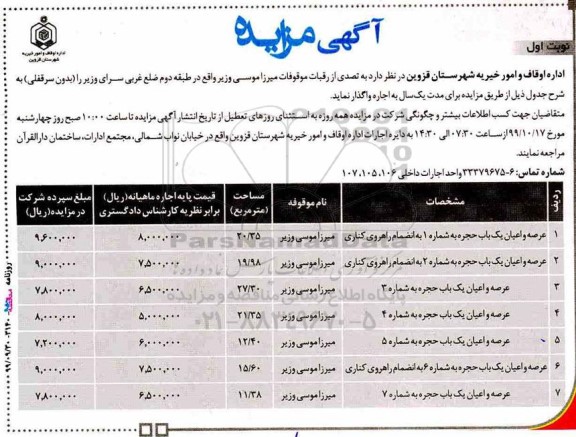 آگهی مزایده
نوبت اول
اداره اوقاف و امور خیریه
شهرستان قزوین
اداره اوقاف و امور خیریه شهرستان قزوین در نظر دارد به تصدی از رقبات موقوفات میرزا موسی وزیر واقع در طبقه دوم ضلع غربی سرای وزیر را (بدون سرقفلی) به
شرح جدول ذیل از طریق مزایده برای مدت یک‌سال به اجاره واگذار نماید.
متقاضیان جهت کسب اطلاعات بیشتر و چگونگی شرکت در مزایده همه روزه به استثنای روزهای تعطیل از تاریخ انتشار آگهی مزایده تا ساعت ۱۰:۰۰ صبح روز چهارشنبه
مورخ ۹۹/۱۰/۱۷ از ساعت ۰۷:۳۰ الی ۱۴:۳۰ به دایره اجارات اداره اوقاف و امور خیریه شهرستان قزوین واقع در خیابان نواب شمالی، مجتمع ادارات، ساختمان دارالقرآن
مراجعه نمایند.
شماره تماس: ۶-۳۳۳۷۹۶۷۵ واحد اجارات داخلی ۱۰۶، ۱۰۵، ۱۰۷
ردیف مشخصات نام موقوفه مساحت (مترمربع) قیمت پایه اجاره ماهیانه (ریال) برابر نظریه کارشناس دادگستری مبلغ سپرده شرکت در مزایده (ریال)
۱ عرصه و اعیان یک باب حجره به شماره ۱ به انضمام راهروی کناری میرزا موسی وزیر ۲۰/۳۵ ۸,۰۰۰,۰۰۰ ۹,۶۰۰,۰۰۰
۲ عرصه و اعیان یک باب حجره به شماره ۲ به انضمام راهروی کناری میرزا موسی وزیر ۱۹/۹۸ ۷,۵۰۰,۰۰۰ ۹,۰۰۰,۰۰۰
۳ عرصه و اعیان یک باب حجره به شماره ۳ میرزا موسی وزیر ۲۷/۳۰ ۶,۵۰۰,۰۰۰ ۷,۸۰۰,۰۰۰
۴ عرصه و اعیان یک باب حجره به شماره ۴ میرزا موسی وزیر ۲۱/۳۵ ۵,۰۰۰,۰۰۰ ۸,۰۰۰,۰۰۰
۵ عرصه و اعیان یک باب حجره به شماره ۵ میرزا موسی وزیر ۱۲/۴۰ ۶,۰۰۰,۰۰۰ ۷,۲۰۰,۰۰۰
۶ عرصه و اعیان یک باب حجره به شماره ۶ به انضمام راهروی کناری میرزا موسی وزیر ۱۵/۶۰ ۷,۵۰۰,۰۰۰ ۹,۰۰۰,۰۰۰
۷ عرصه و اعیان یک باب حجره به شماره ۷ میرزا موسی وزیر ۱۱/۳۸ ۶,۵۰۰,۰۰۰ ۷,۸۰۰,۰۰۰
پایگاه اطلاع رسانی مناقصه و مزایده
۰۲۱-۸۸۳۴۹۶۷۰-۵